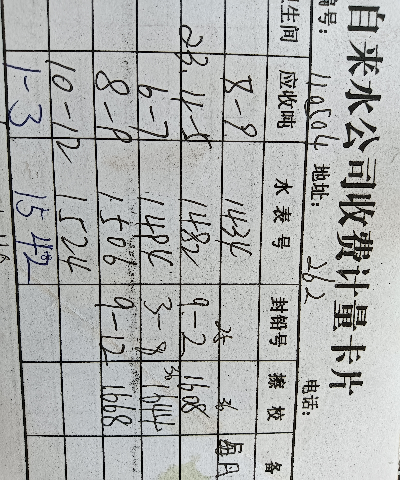 自来水公司收费计量卡片
编号: 110504 地址: 262 电话:
生间 应收吨 水表号 封铅号 擦校 备
8-9 1434 每月
23.4-5 1482 9-2 1608
6-7 1494 3-8 1644
8-9 1506 9-12 1668
10-12 1524
1-3 1542